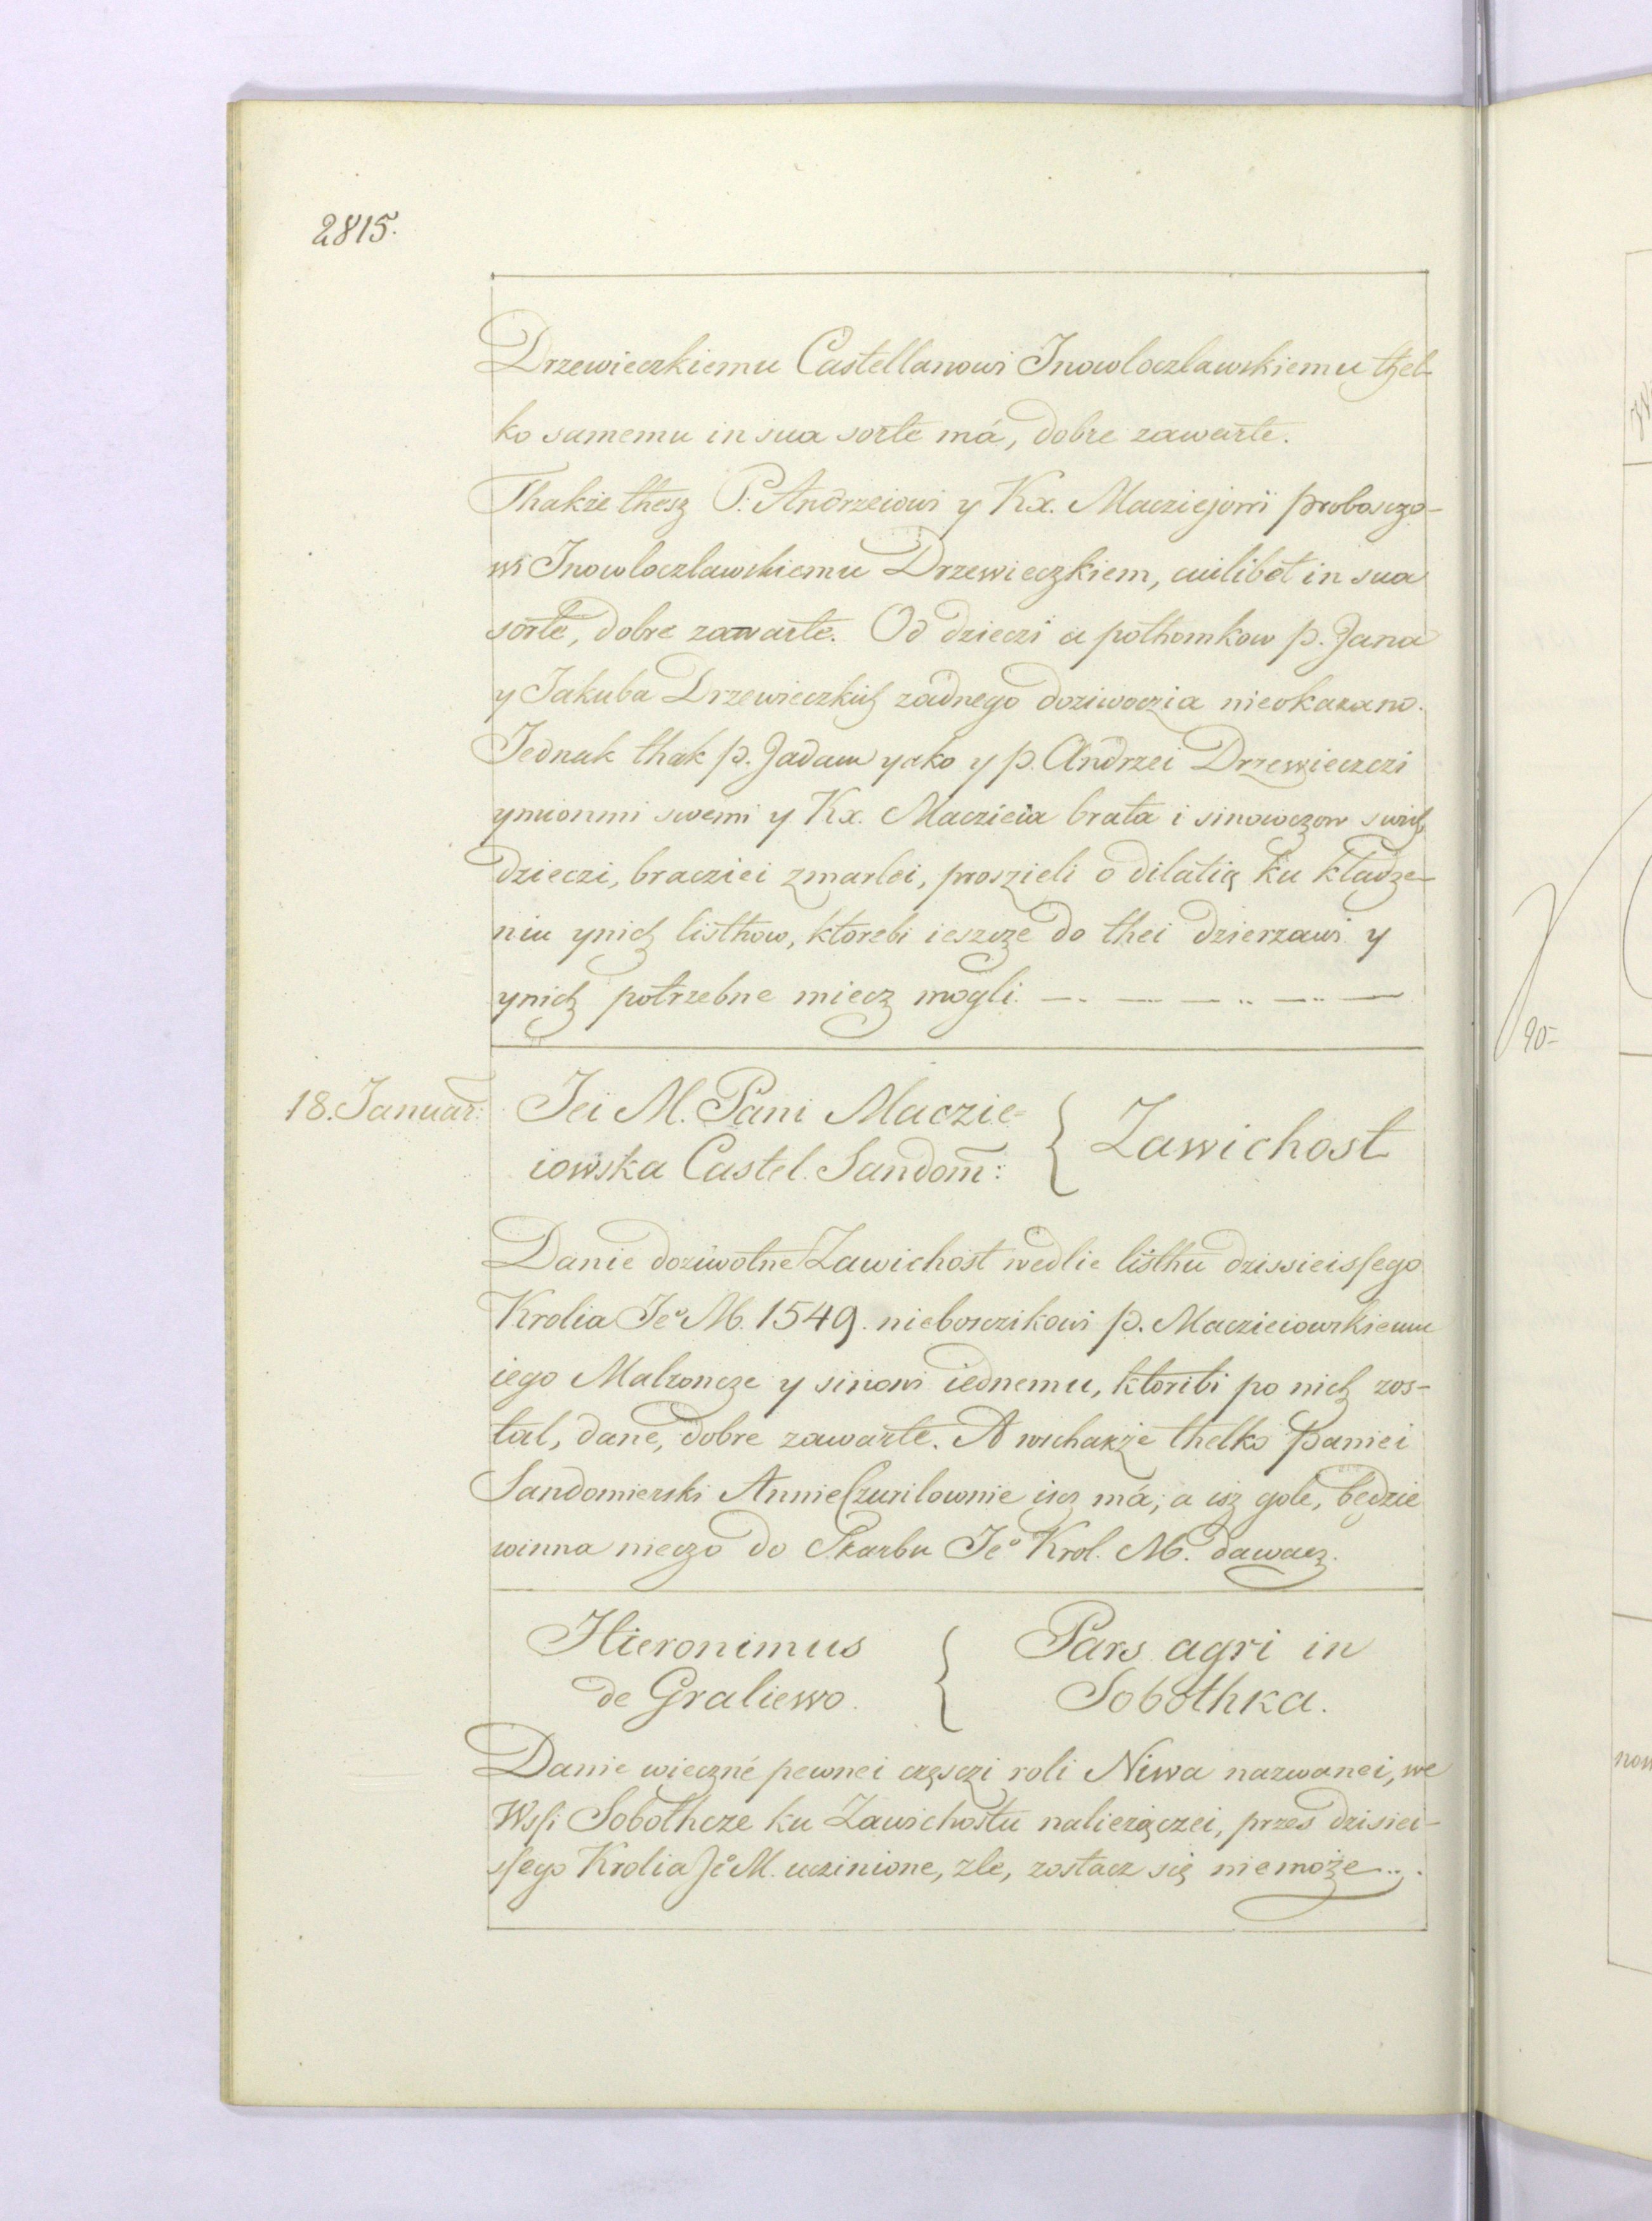 2815.
Drzewieczkiemu Castellanowi Inowloczlawskiemu thel-
ko samemu in sua sorte má, dobre zawarte.
Thakże thesz P. Andrzeiowi y Kx. Macziejowi proboszczo-
wi Inowloczlawskiemu Drzewieczkiem, cuilibet in sua
sorte, dobre zawarte. Od dzieczi a pothomkow p. Jana
y Jakuba Drzewieczkich żadnego doziwoczia nieokazano.
Jednak thak p. Jadam yako y p. Andrzei Drzewieczczi
ymionmi swemi y Kx. Maczieia brata i sinowczow swich
dzieczi, bracziei zmarlei, proszieli o dilatią ku kładze-
niu ynich listhow, ktorebi ieszcze do thei dzierzawi y
ynich potrzebne miecz mogli.
18. Januar:
Jei M. Pani Maczie-
iowska Castel. Sandom:
{ Zawichost
Danie doziwotne Zawichost wedlie listhu dzissieissego
Krolia Jeo M. 1549. nieboszczikowi p. Maczieiowskiemu
iego Malzoncze y sinowi iednemu, ktoribi po nich zos-
tal, dane, dobre zawarte. A wschakże thelko Paniei
Sandomierski Annie Czurilownie iscz má; a isz gole, będzie
winna nieczo do Skarbu Jeo Krol. M. dawacz.
Hieronimus
de Graliewo.
{ Pars agri in
Sobothka.
Danie wieczné pewnei częsczi roli Niwa nazwanei, we
Wsi Sobothcze ku Zawichostu nalieżączei, przes dzisiei-
ssego Krolia Jeo M. uczinione, zle, zostacz się niemoże.
90-
now